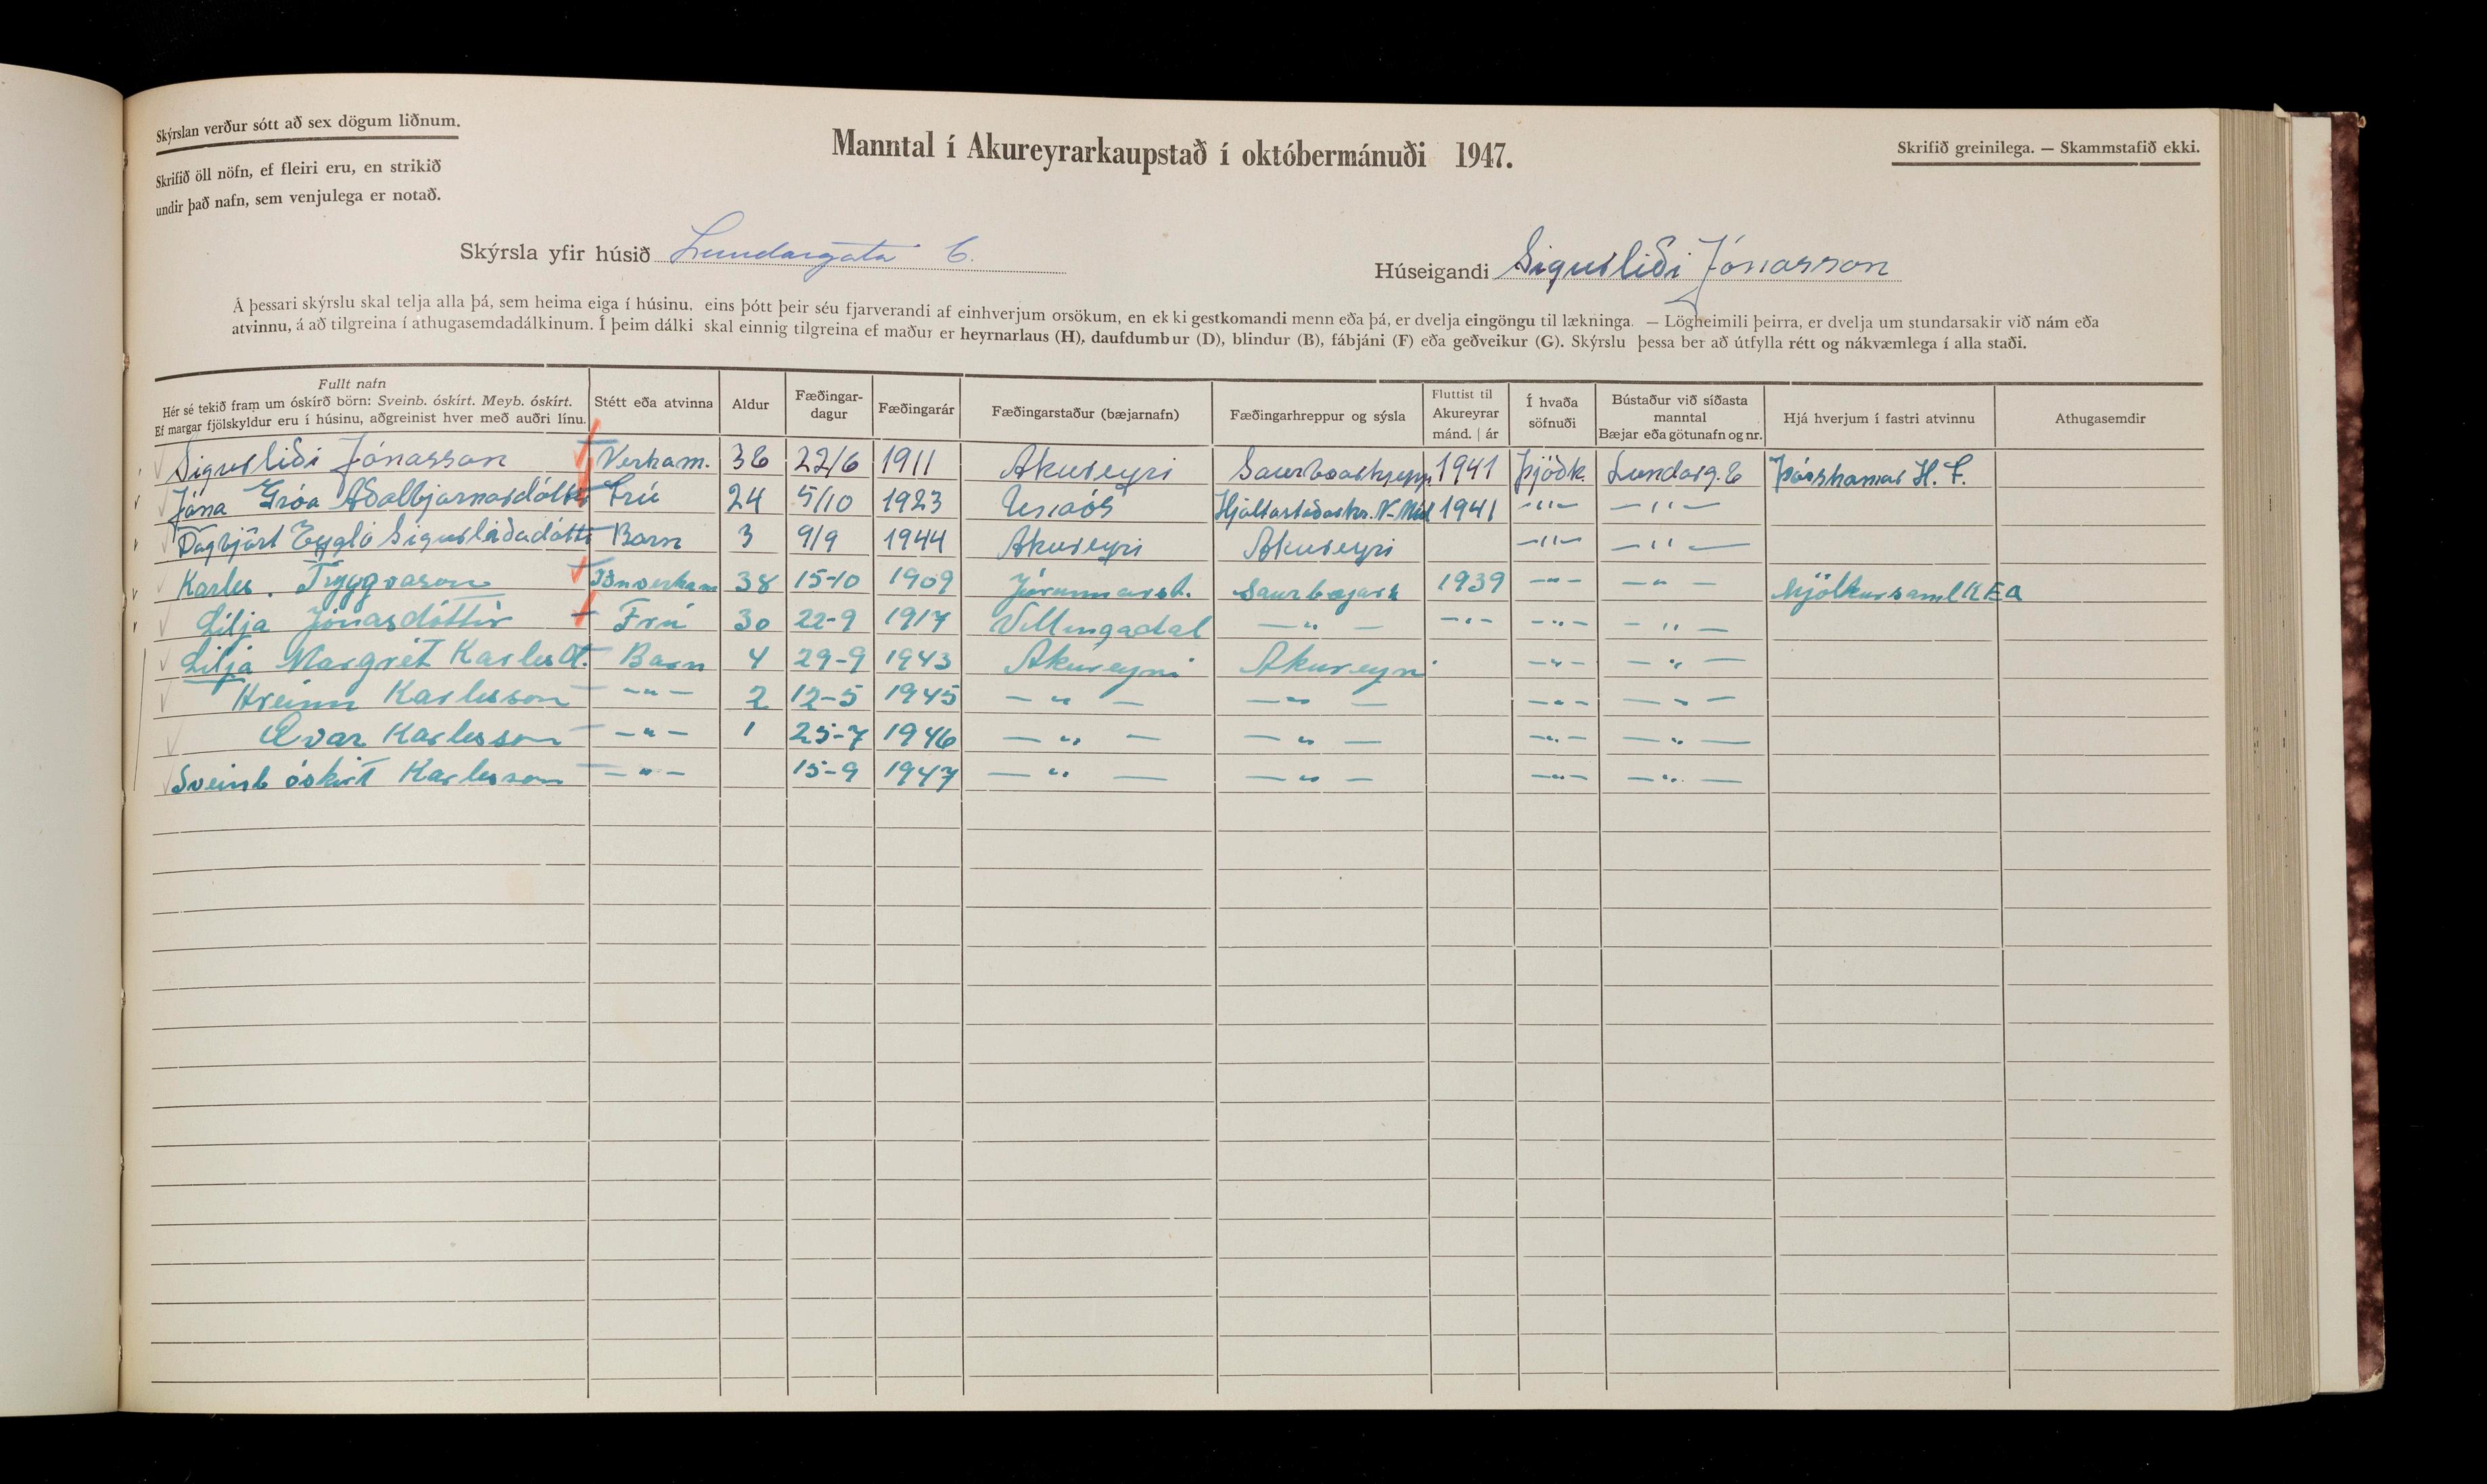 Skýrslan verður sótt að sex dögum liðnum.
Skrifið öll nöfn, ef fleiri eru, en strikið
undir það nafn, sem venjulega er notað.
Manntal í Akureyrarkaupstað í októbermánuði 1947.
Skrifið greinilega. — Skammstafið ekki.
Skýrsla yfir húsið Lundargata 6.
Húseigandi Sigurliði Jónasson
Á þessari skýrslu skal telja alla þá, sem heima eiga í húsinu, eins þótt þeir séu fjarverandi af einhverjum orsökum, en ekki gestkomandi menn eða þá, er dvelja eingöngu til lækninga. — Lögheimili þeirra, er dvelja um stundarsakir við nám eða
atvinnu, á að tilgreina í athugasemdadálkinum. Í þeim dálki skal einnig tilgreina ef maður er heyrnarlaus (H), daufdumbur (D), blindur (B), fábjáni (F) eða geðveikur (G). Skýrslu þessa ber að útfylla rétt og nákvæmlega í alla staði.
Fullt nafn
Hér sé tekið fram um óskírð börn: Sveinb. óskírt. Meyb. óskírt.
Ef margar fjölskyldur eru í húsinu, aðgreinist hver með auðri línu.
Stétt eða atvinna
Aldur
Fæðingar-
dagur
Fæðingarár
Fæðingarstaður (bæjarnafn)
Fæðingarhreppur og sýsla
Fluttist til
Akureyrar
mánd. | ár
Í hvaða
söfnuði
Bústaður við síðasta
manntal
Bæjar eða götunafn og nr.
Hjá hverjum í fastri atvinnu
Athugasemdir
Sigurliði Jónasson Verkam. 36 22/6 1911 Akureyri 1941 Þjóðk. Lundarg. 6 Þórshamar H. F.
Jóna Gróa Aðalbjarnardóttir Frú 24 5/10 1923 Unaós Hjaltastaðarhr. N-Múl 1941 -"- -"-
Dagbjört Eygló Sigurliðadótti Barn 3 9/9 1944 Akureyri Akureyri -"- -"-
Karles. Tryggvason 38 15-10 1909 Jórunnarst. Saurbæjarh 1939 -"- -"- Mjólkursaml KEA
Lilja Jónasdóttir Frú 30 22-9 1917 Villingadal -"- -"- -"- -"-
Lilja Margrét Karlesd. Barn 4 29-9 1943 Akureyri Akureyri -"- -"-
Hreinn Karlesson -"- 2 12-5 1945 -"- -"- -"- -"-
Ævar Karlesson -"- 1 25-7 1946 -"- -"- -"- -"-
Sveinb óskírt Karlesson -"- 15-9 1947 -"- -"- -"- -"-